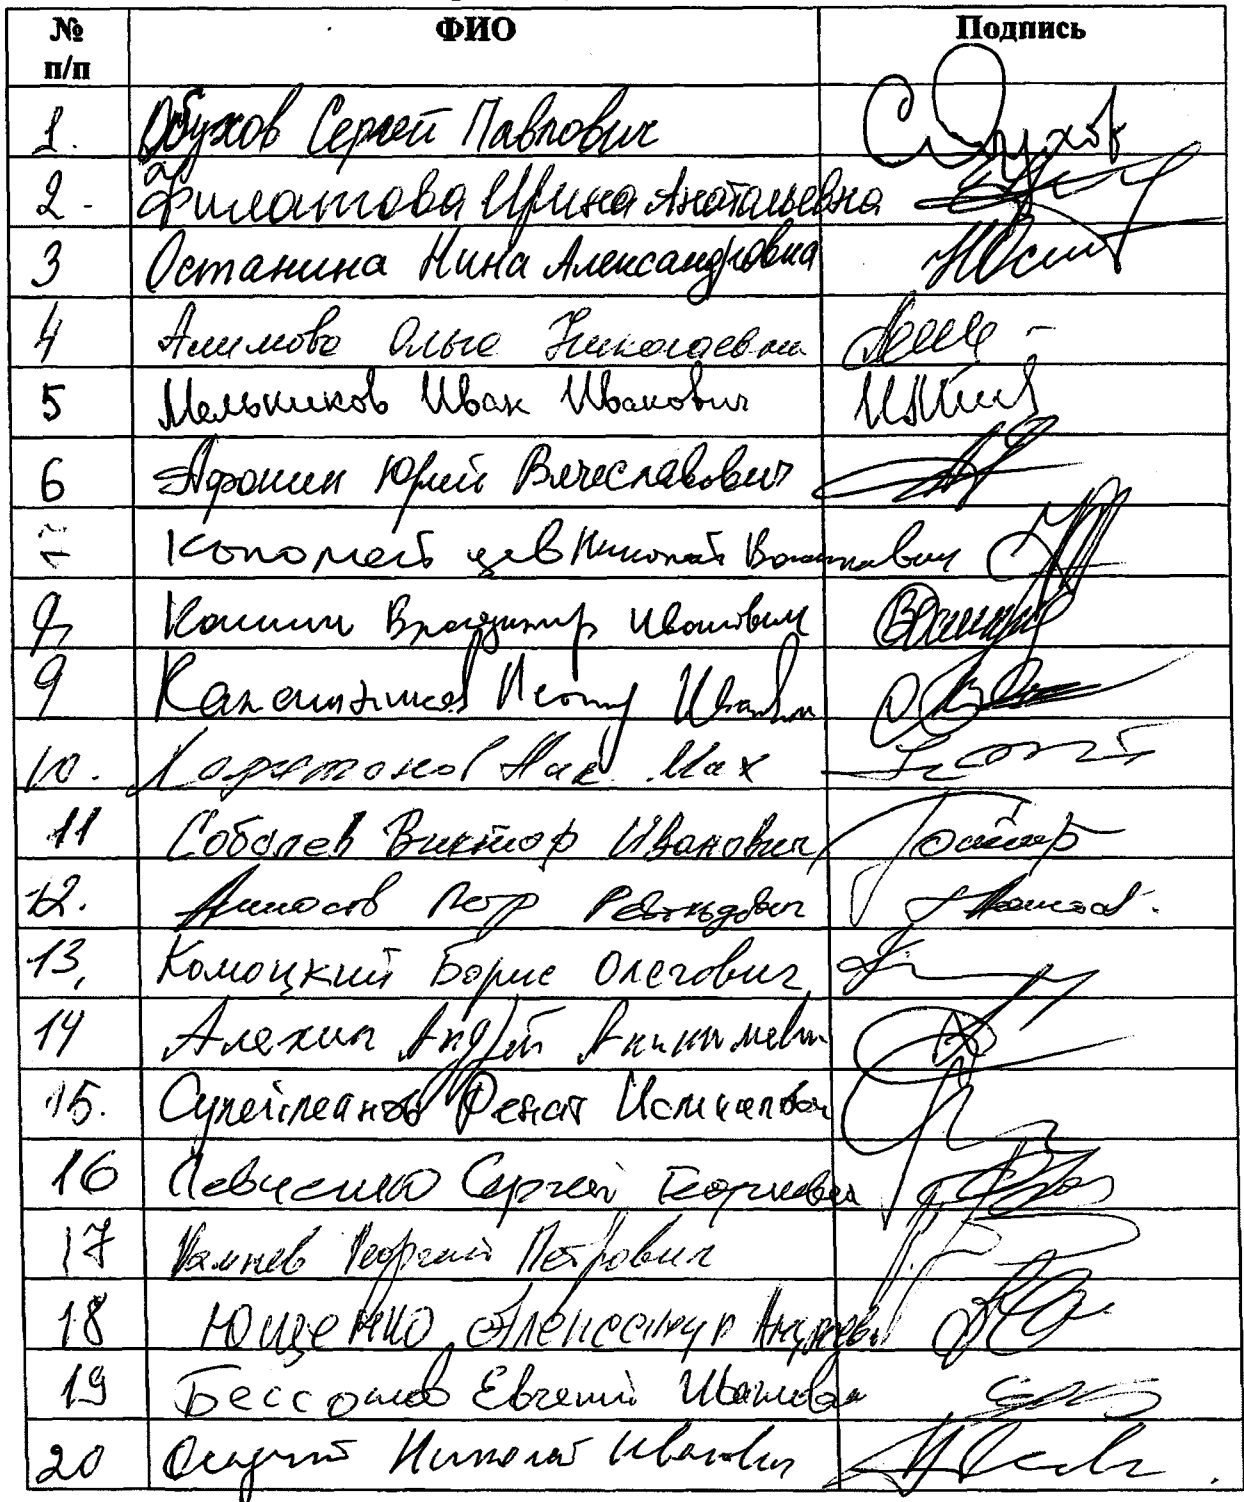 № п/п ФИО Подпись
1. Обухов Сергей Павлович
2. Филатова Ирина Анатольевна
3 Останина Нина Александровна
4 Алимова Ольга Николаевна
5 Мельников Иван Иванович
6 Афонин Юрий Вячеславович
7 Коломейцев Николай Васильевич
8 Кашин Владимир Иванович
9 Калашников Леонид Иванович
10. Мах
11 Соболев Виктор Иванович
12. Аммосов Петр Револьдович
13. Комоцкий Борис Олегович
14 Алехин Андрей Анатольевич
15. Сулейманов Ренат Исмаилович
16 Левченко Сергей Георгиевич
17 Камнев Георгий Петрович
18 Ющенко Александр Андреевич
19 Бессонов Евгений Иванович
20 Осадчий Николай Иванович